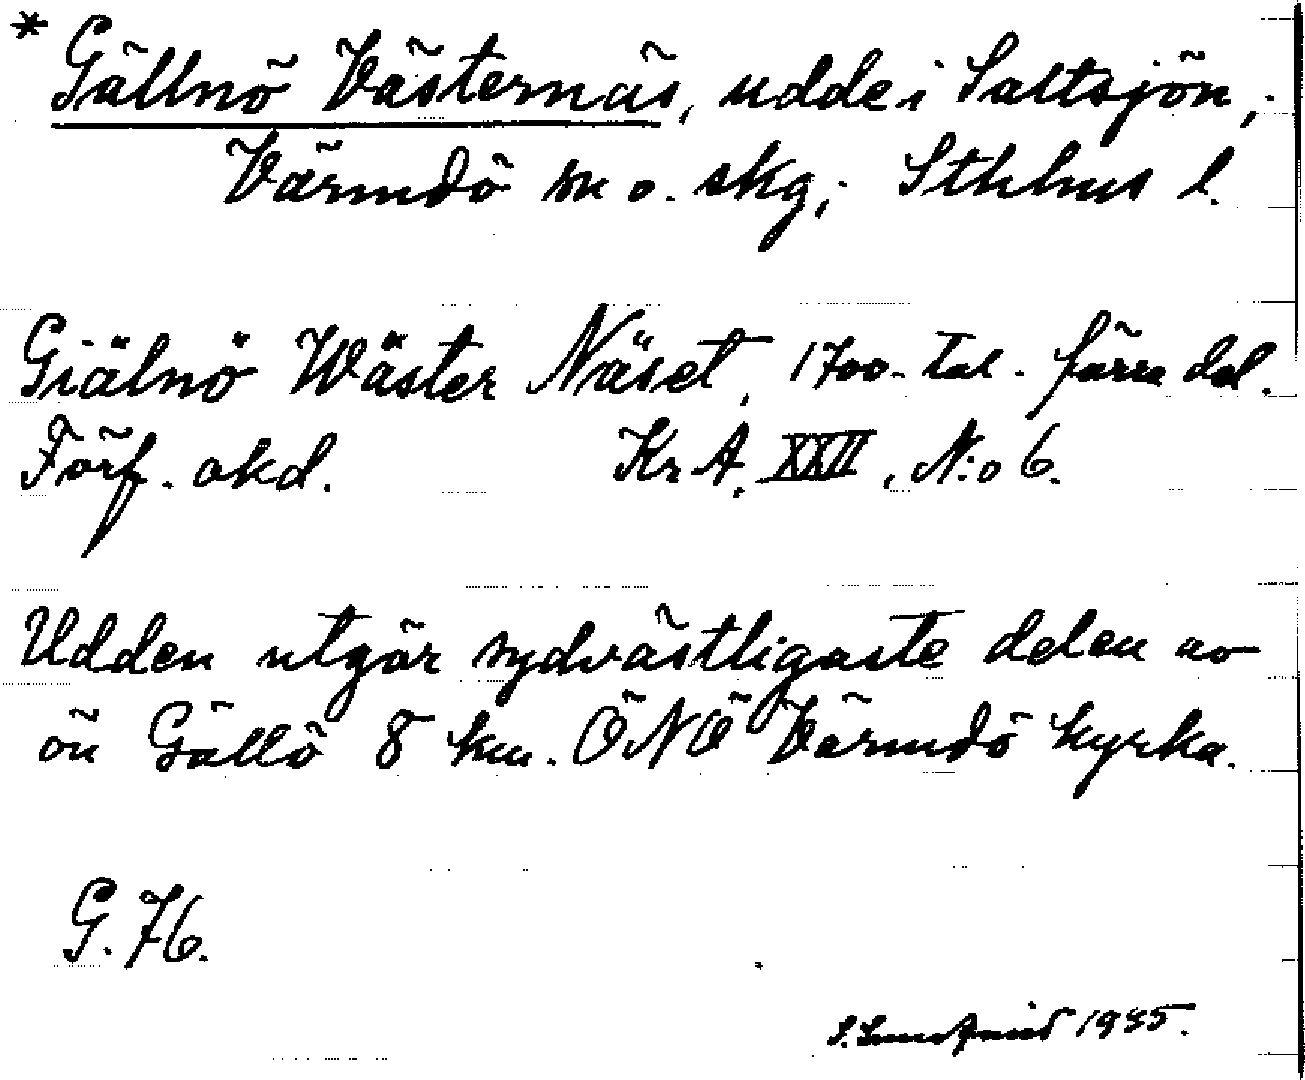 * Gällnö Västernäs, udde i Saltsjön,;
Värmdö sn o. skg,; Sthlms l.
Giälnö Wäster Näset, 1700-tal. förra del.
Förf. okd. KrA, XXII, N:o 6.
Udden utgör sydvästligaste delen av
ön Gällö 8 km. ÖNÖ Värmdö kyrka.
G. 76.
1935.